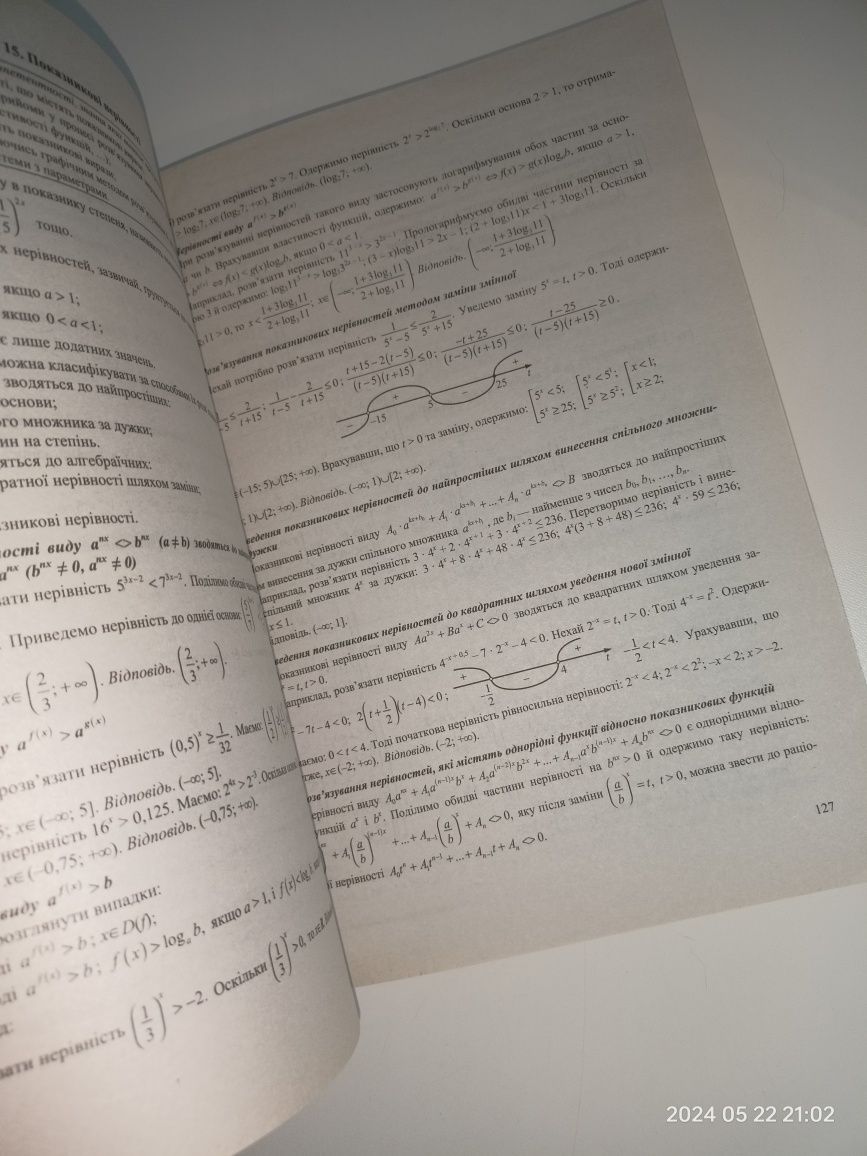 15. Показникові нерівності
у в показнику степеня,
(1/5)^{2x} тощо.
х нерівностей, зазвичай,
якщо a > 1;
якщо 0 < a < 1;
є лише додатних значень.
можна класифікувати за способами
зводяться до найпростіших:
основи;
ого множника за дужки;
ин на степінь.
яться до алгебраїчних:
ратної нерівності шляхом заміни;
зникові нерівності.
ності виду a^{nx} <> b^{nx} (a ≠ b) зводяться
a^{nx} (b^{nx} ≠ 0, a^{nx} ≠ 0)
ати нерівність 5^{3x−2} < 7^{3x−2}. Поділимо
. Приведемо нерівність до однієї основи:
x∈(2/3; +∞). Відповідь. (2/3; +∞).
у a^{f(x)} > a^{g(x)}
розв’язати нерівність (0,5)^x ≥ 1/32. Маємо:
5; x∈(−∞; 5]. Відповідь. (−∞; 5].
нерівність 16^x > 0,125. Маємо: 2^{4x} > 2^{−3}.
x∈(−0,75; +∞). Відповідь. (−0,75; +∞).
виду a^{f(x)} > b
розглянути випадки:
ді a^{f(x)} > b; x∈D(f);
ді a^{f(x)} > b; f(x) > log_a b, якщо a > 1, і f(x) < log_a b,
д:
зати нерівність (1/3)^x > −2. Оскільки (1/3)^x > 0,
розв’язати нерівність 2^x > 7. Одержимо нерівність 2^x > 2^{log_2 7}. Оскільки основа 2 > 1, то отрима-
> log_2 7; x∈(log_2 7; +∞). Відповідь. (log_2 7; +∞).
Нерівності виду a^{f(x)} > b^{g(x)}
ри розв’язуванні нерівностей такого виду застосовують логарифмування обох частин за осно-
a чи b. Врахувавши властивості функцій, одержимо: a^{f(x)} > b^{g(x)} ⇔ f(x) > g(x)log_a b, якщо a > 1,
> b^{g(x)} ⇔ f(x) < g(x)log_a b, якщо 0 < a < 1.
Наприклад, розв’язати нерівність 11^{3−x} > 3^{2x−1}. Прологарифмуємо обидві частини нерівності за
ою 3 й одержимо: log_3 11^{3−x} > log_3 3^{2x−1}; (3−x)log_3 11 > 2x−1; (2+log_3 11)x < 1+3log_3 11. Оскільки
log_3 11 > 0, то x < (1+3log_3 11)/(2+log_3 11); x∈(−∞; (1+3log_3 11)/(2+log_3 11)) Відповідь. (−∞; (1+3log_3 11)/(2+log_3 11))
Розв’язування показникових нерівностей методом заміни змінної
Нехай потрібно розв’язати нерівність 1/(5^x−5) ≤ 2/(5^x+15). Уведемо заміну 5^x = t, t > 0. Тоді одержи-
≤ 2/(t+15); 1/(t−5) − 2/(t+15) ≤ 0; (t+15−2(t−5))/((t−5)(t+15)) ≤ 0; (−t+25)/((t−5)(t+15)) ≤ 0; (t−25)/((t−5)(t+15)) ≥ 0.
− −15 + 5 − 25 + t
(−15; 5)∪[25; +∞). Врахувавши, що t > 0 та заміну, одержимо: [5^x < 5; 5^x ≥ 25; [5^x < 5^1; 5^x ≥ 5^2; [x < 1; x ≥ 2;
1)∪[2; +∞). Відповідь. (−∞; 1)∪[2; +∞).
ведення показникових нерівностей до найпростіших шляхом винесення спільного множни-
дужки
оказникові нерівності виду A_0·a^{kx+b_0} + A_1·a^{kx+b_1} + ... + A_n·a^{kx+b_n} <> B зводяться до найпростіших
м винесення за дужки спільного множника a^{kx+b_i}, де b_i — найменше з чисел b_0, b_1, ..., b_n.
априклад, розв’язати нерівність 3·4^x + 2·4^{x+1} + 3·4^{x+2} ≤ 236. Перетворимо нерівність і вине-
спільний множник 4^x за дужки: 3·4^x + 8·4^x + 48·4^x ≤ 236; 4^x(3+8+48) ≤ 236; 4^x·59 ≤ 236;
x ≤ 1.
ідповідь. (−∞; 1].
ведення показникових нерівностей до квадратних шляхом уведення нової змінної
оказникові нерівності виду Aa^{2x} + Ba^x + C <> 0 зводяться до квадратних шляхом уведення за-
= t, t > 0.
априклад, розв’язати нерівність 4^{−x+0,5} − 7·2^{−x} − 4 < 0. Нехай 2^{−x} = t, t > 0. Тоді 4^{−x} = t^2. Одержи-
−7t−4 < 0; 2(t+1/2)(t−4) < 0; + −1/2 − 4 + t −1/2 < t < 4. Урахувавши, що
маємо: 0 < t < 4. Тоді початкова нерівність рівносильна нерівності: 2^{−x} < 4; 2^{−x} < 2^2; −x < 2; x > −2.
тже, x∈(−2; +∞). Відповідь. (−2; +∞).
озв’язування нерівностей, які містять однорідні функції відносно показникових функцій
ерівності виду A_0a^{nx} + A_1a^{(n−1)x}b^x + A_2a^{(n−2)x}b^{2x} + ... + A_{n−1}a^xb^{(n−1)x} + A_nb^{nx} <> 0 є однорідними відно-
ункцій a^x і b^x. Поділимо обидві частини нерівності на b^{nx} > 0 й одержимо таку нерівність:
+ A_1(a/b)^{(n−1)x} + ... + A_{n−1}(a/b)^x + A_n <> 0, яку після заміни (a/b)^x = t, t > 0, можна звести до раціо-
ї нерівності A_0t^n + A_1t^{n−1} + ... + A_{n−1}t + A_n <> 0.
127
2024 05 22 21:02